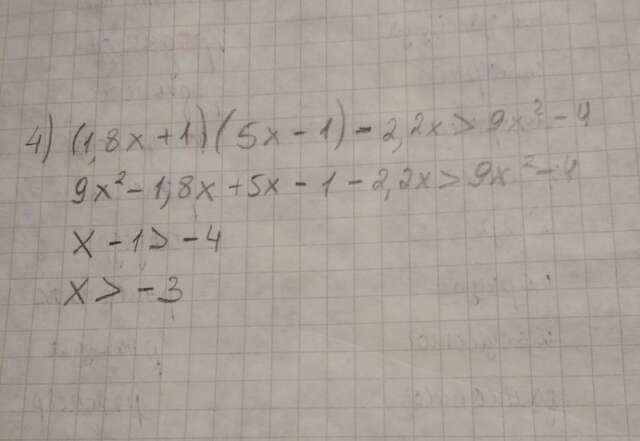 4) (1,8x+1)(5x-1)-2,2x>9x²-4
9x²-1,8x+5x-1-2,2x>9x²-4
x-1>-4
x>-3